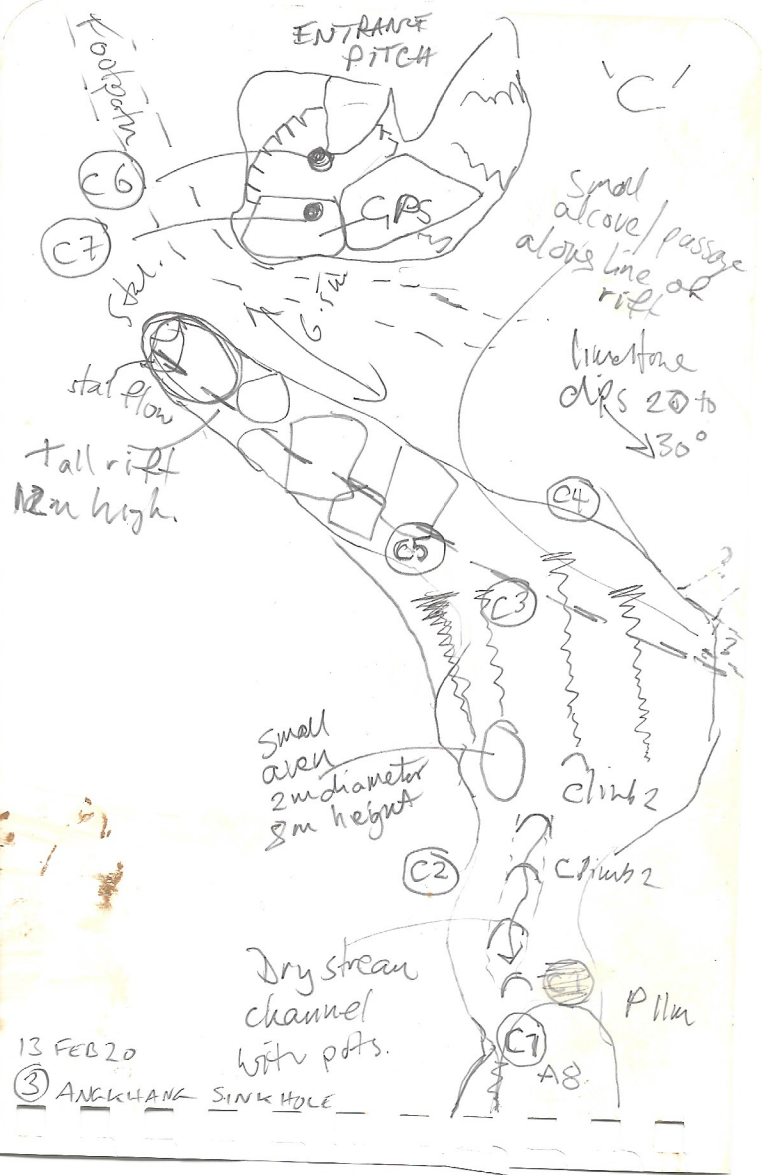 Footpath
ENTRANCE
PITCH
'C'
C6
C7
GPS
Small
alcove/passage
along line of
rift
stal.
6.5m
limestone
dips 20 to
30°
stal flow
tall rift
12m high.
C4
C5
C3
?
?
Small
aven
2m diameter
8m height
Climb 2
C2
Climb 2
Dry stream
channel
with pots.
C1
P11m
C1
A8
13 FEB 20
3 ANGKHANG SINKHOLE